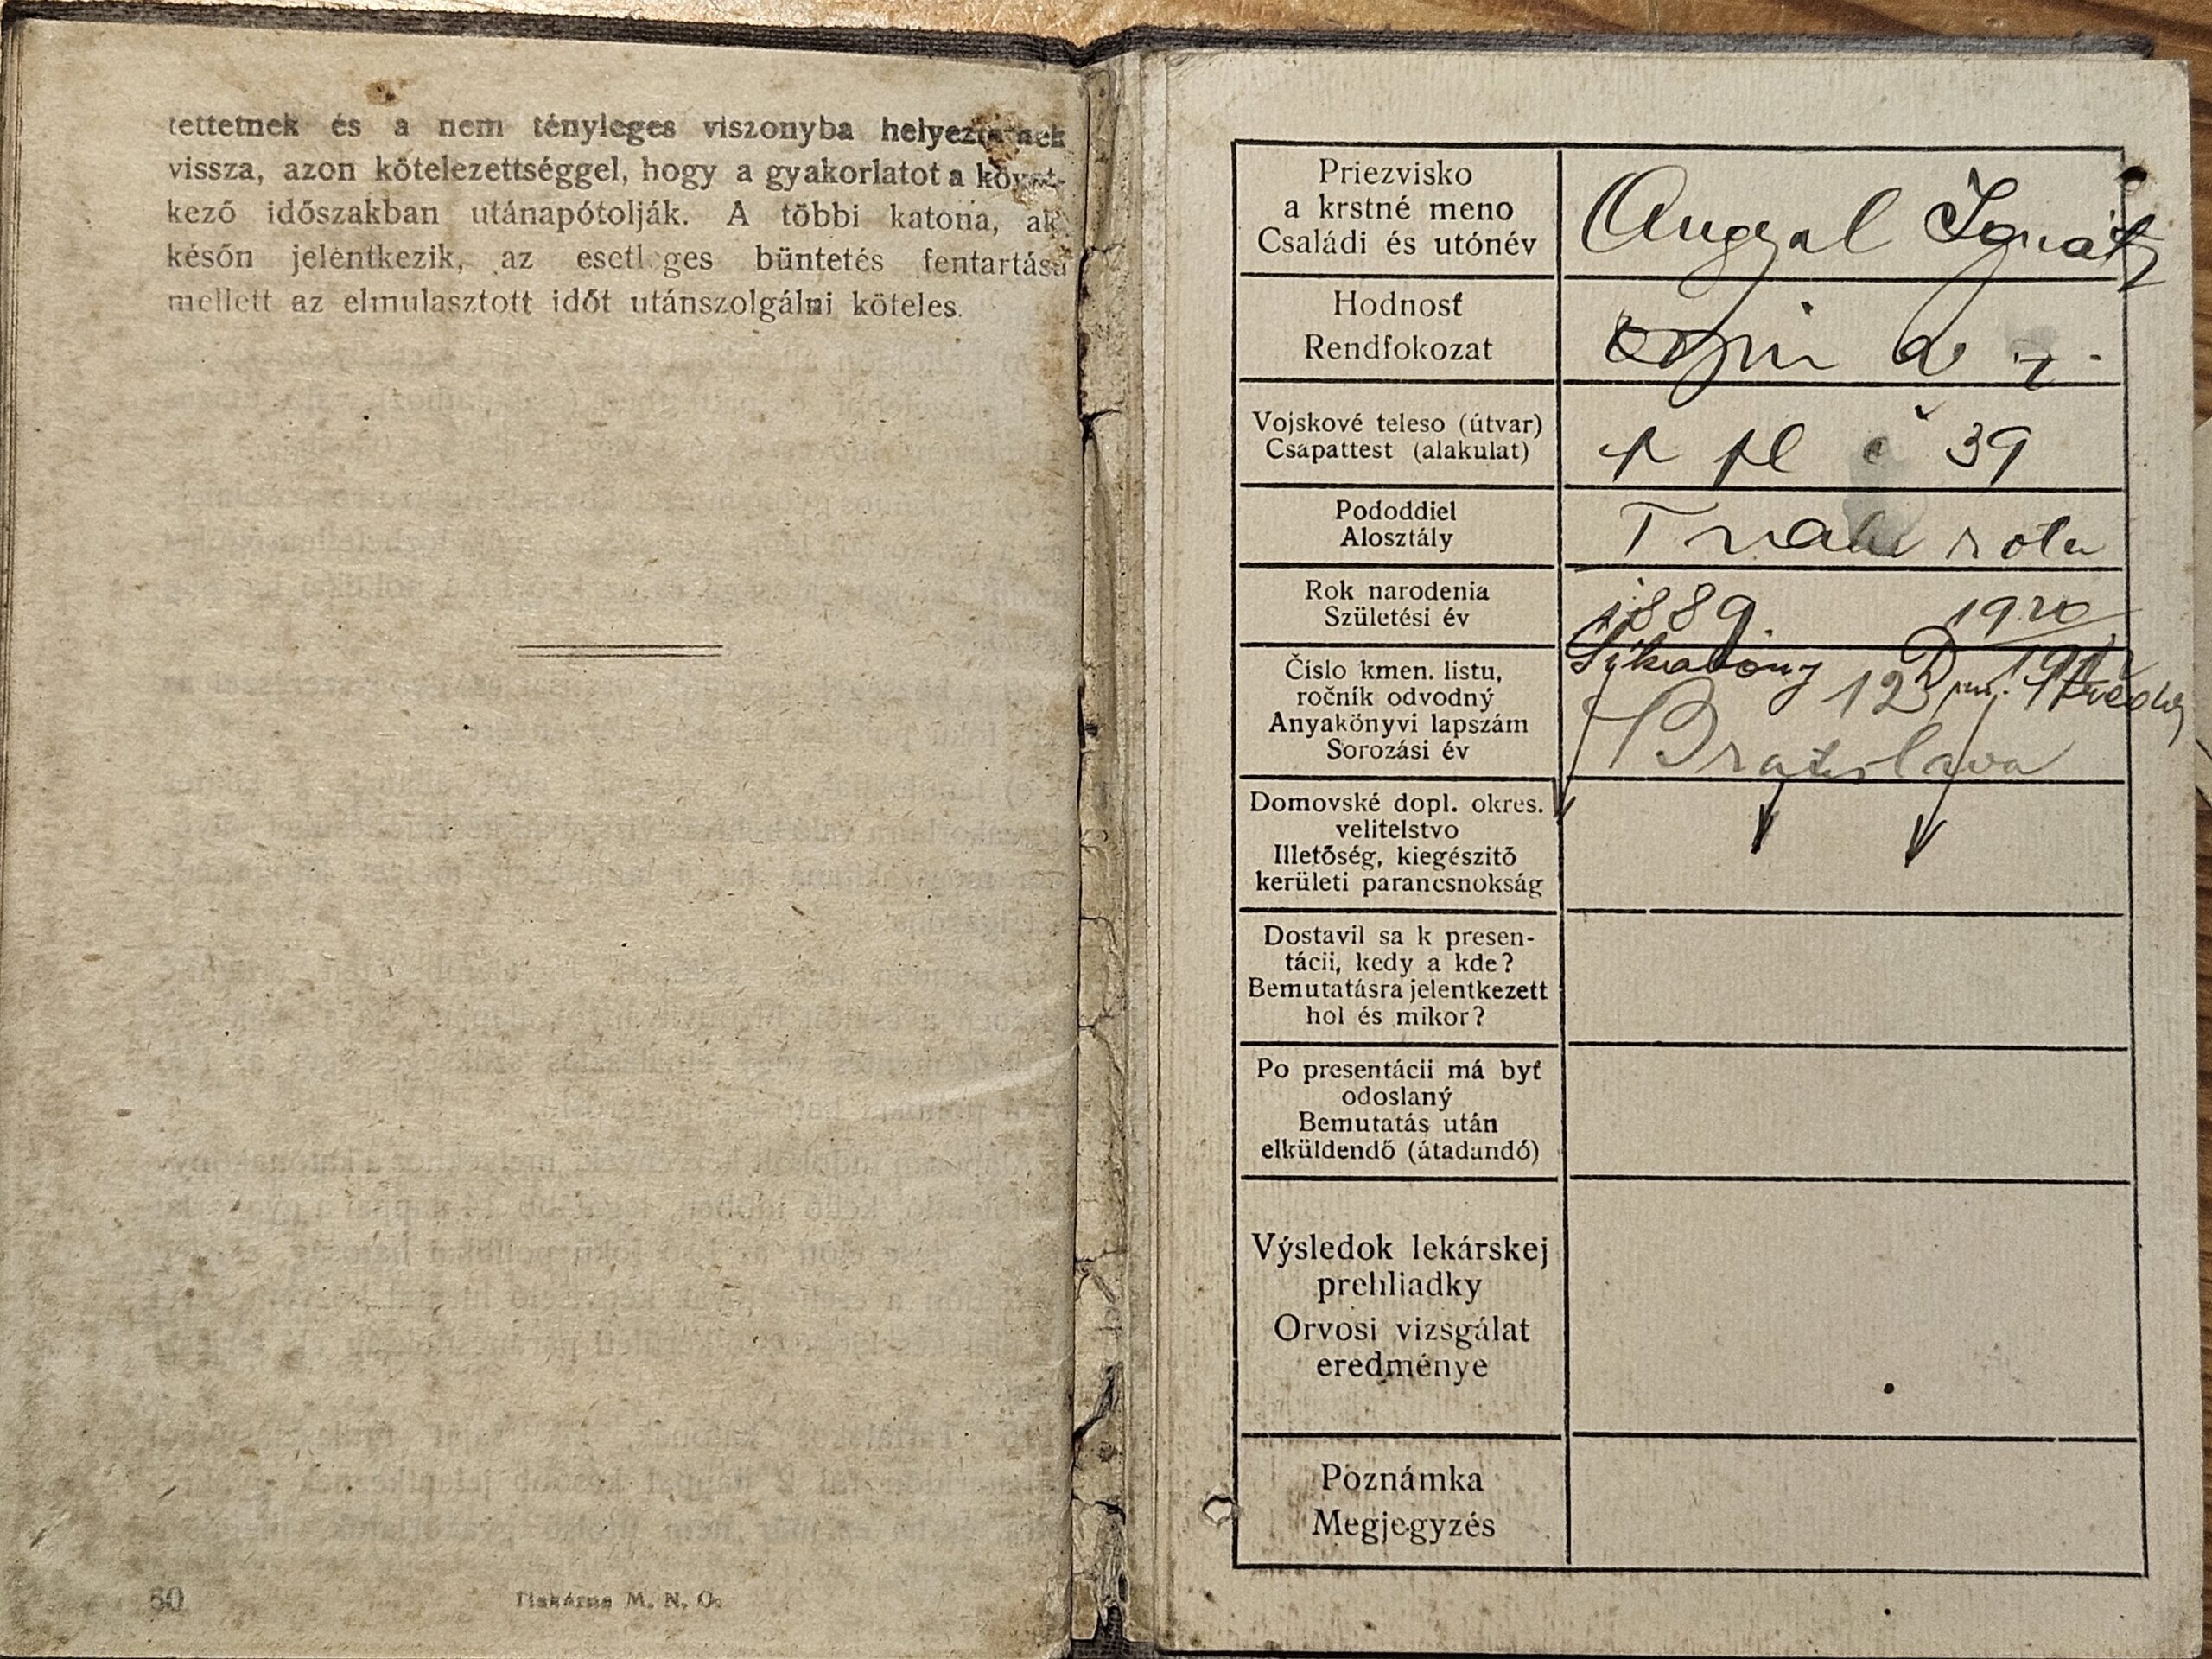 tettetnek és a nem tényleges viszonyba helyeztetnek
vissza, azon kötelezettséggel, hogy a gyakorlatot a követ-
kező időszakban utánapótolják. A többi katona, aki
későn jelentkezik, az esetleges büntetés fentartása
mellett az elmulasztott időt utánszolgálni köteles.
60
Tiskárna M. N. O.
Priezvisko
a krstné meno
Családi és utónév
Angyal Ignátz
Hodnosť
Rendfokozat
Vojskové teleso (útvar)
Csapattest (alakulat)
p pl č 39
Pododdiel
Alosztály
rota
Rok narodenia
Születési év
1889. 1920
Číslo kmen. listu,
ročník odvodný
Anyakönyvi lapszám
Sorozási év
12
Bratislava
Domovské dopl. okres.
velitelstvo
Illetőség, kiegészitő
kerületi parancsnokság
Dostavil sa k presen-
tácii, kedy a kde?
Bemutatásra jelentkezett
hol és mikor?
Po presentácii má byť
odoslaný
Bemutatás után
elküldendő (átadandó)
Výsledok lekárskej
prehliadky
Orvosi vizsgálat
eredménye
Poznámka
Megjegyzés